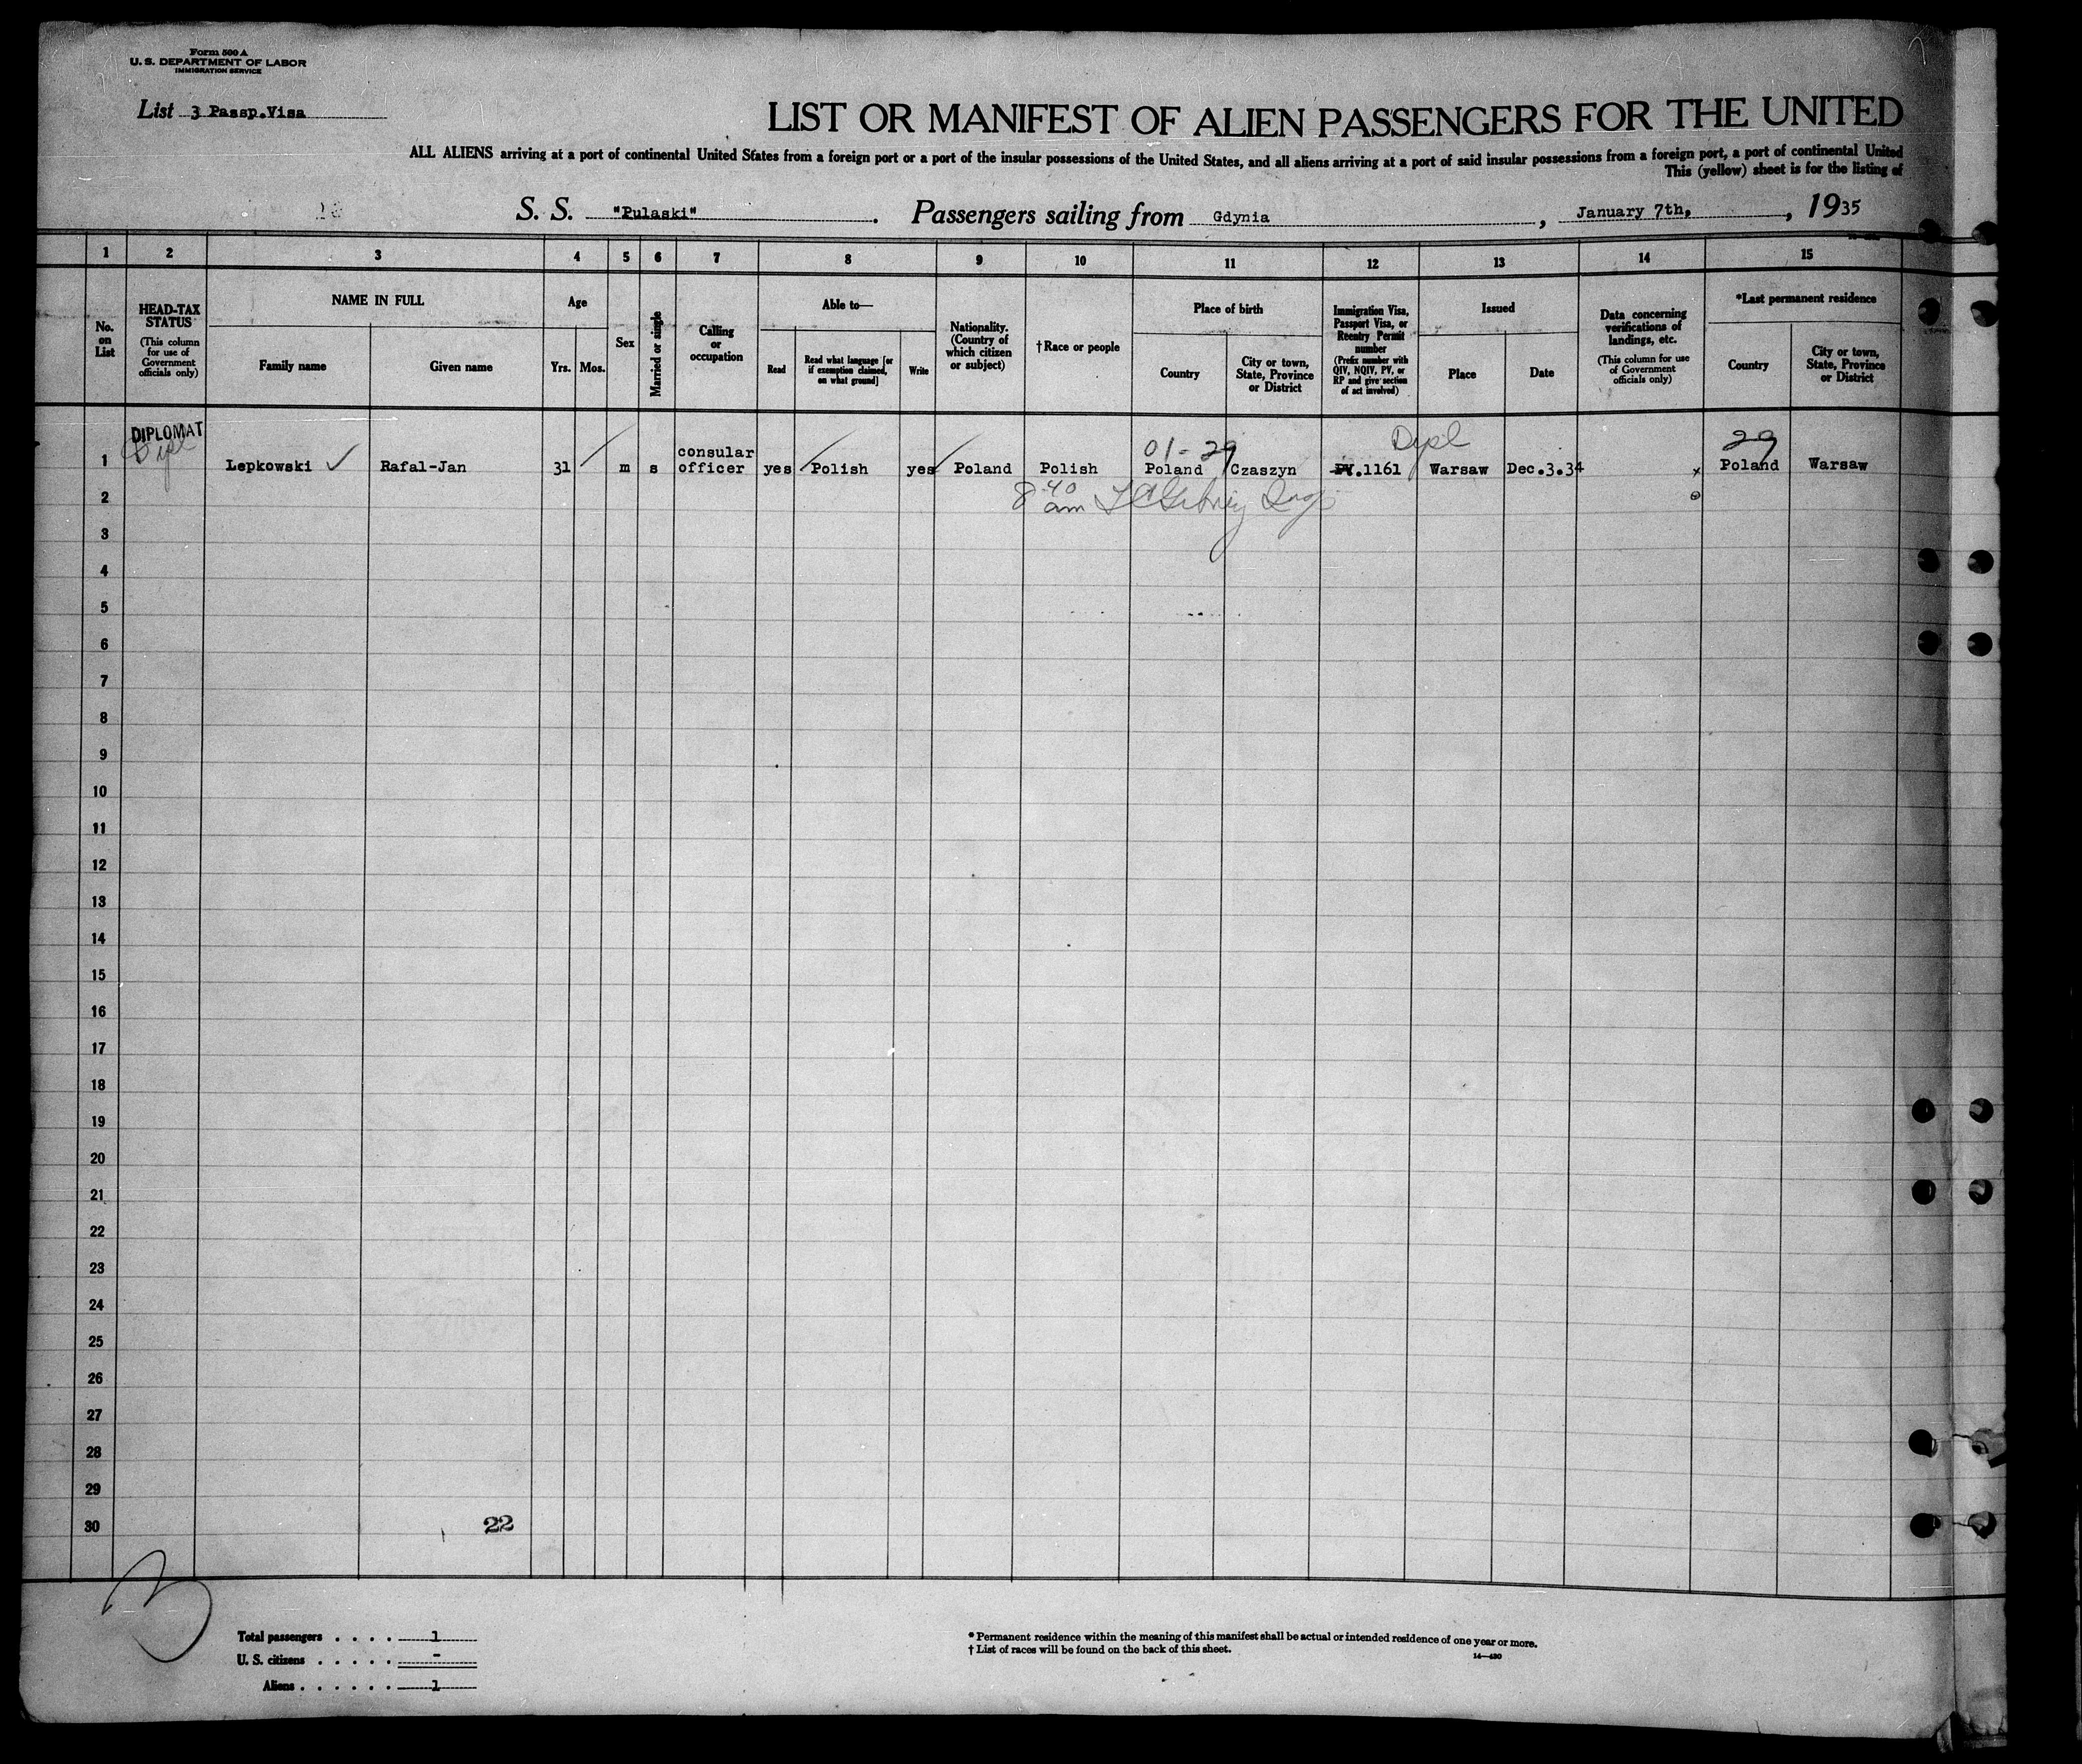 Form 500 A
U. S. DEPARTMENT OF LABOR
IMMIGRATION SERVICE
List 3 Passp.Visa
LIST OR MANIFEST OF ALIEN PASSENGERS FOR THE UNITED
ALL ALIENS arriving at a port of continental United States from a foreign port or a port of the insular possessions of the United States, and all aliens arriving at a port of said insular possessions from a foreign port, a port of continental United
This (yellow) sheet is for the listing of
S. S. "Pulaski". Passengers sailing from Gdynia, January 7th, , 1935
1 2 3 4 5 6 7 8 9 10 11 12 13 14 15
No. on List
HEAD-TAX STATUS
(This column for use of Government officials only)
NAME IN FULL
Family name Given name
Age
Yrs. Mos.
Sex
Married or single
Calling or occupation
Able to—
Read
Read what language [or if exemption claimed, on what ground]
Write
Nationality. (Country of which citizen or subject)
†Race or people
Place of birth
Country
City or town, State, Province or District
Immigration Visa, Passport Visa, or Reentry Permit number
(Prefix number with QIV, NQIV, PV, or RP and give section of act involved)
Issued
Place Date
Data concerning verifications of landings, etc.
(This column for use of Government officials only)
*Last permanent residence
Country
City or town, State, Province or District
DIPLOMAT
Dipl
01-29 Dipl 29
1 Lepkowski Rafal-Jan 31 m s consular officer yes Polish yes Poland Polish Poland Czaszyn PV.1161 Warsaw Dec.3.34 x Poland Warsaw
2 8 40 am
3
4
5
6
7
8
9
10
11
12
13
14
15
16
17
18
19
20
21
22
23
24
25
26
27
28
29
30
22
3
Total passengers . . . . 1
U. S. citizens . . . . . -
Aliens . . . . . . 1
* Permanent residence within the meaning of this manifest shall be actual or intended residence of one year or more.
† List of races will be found on the back of this sheet.
14—430